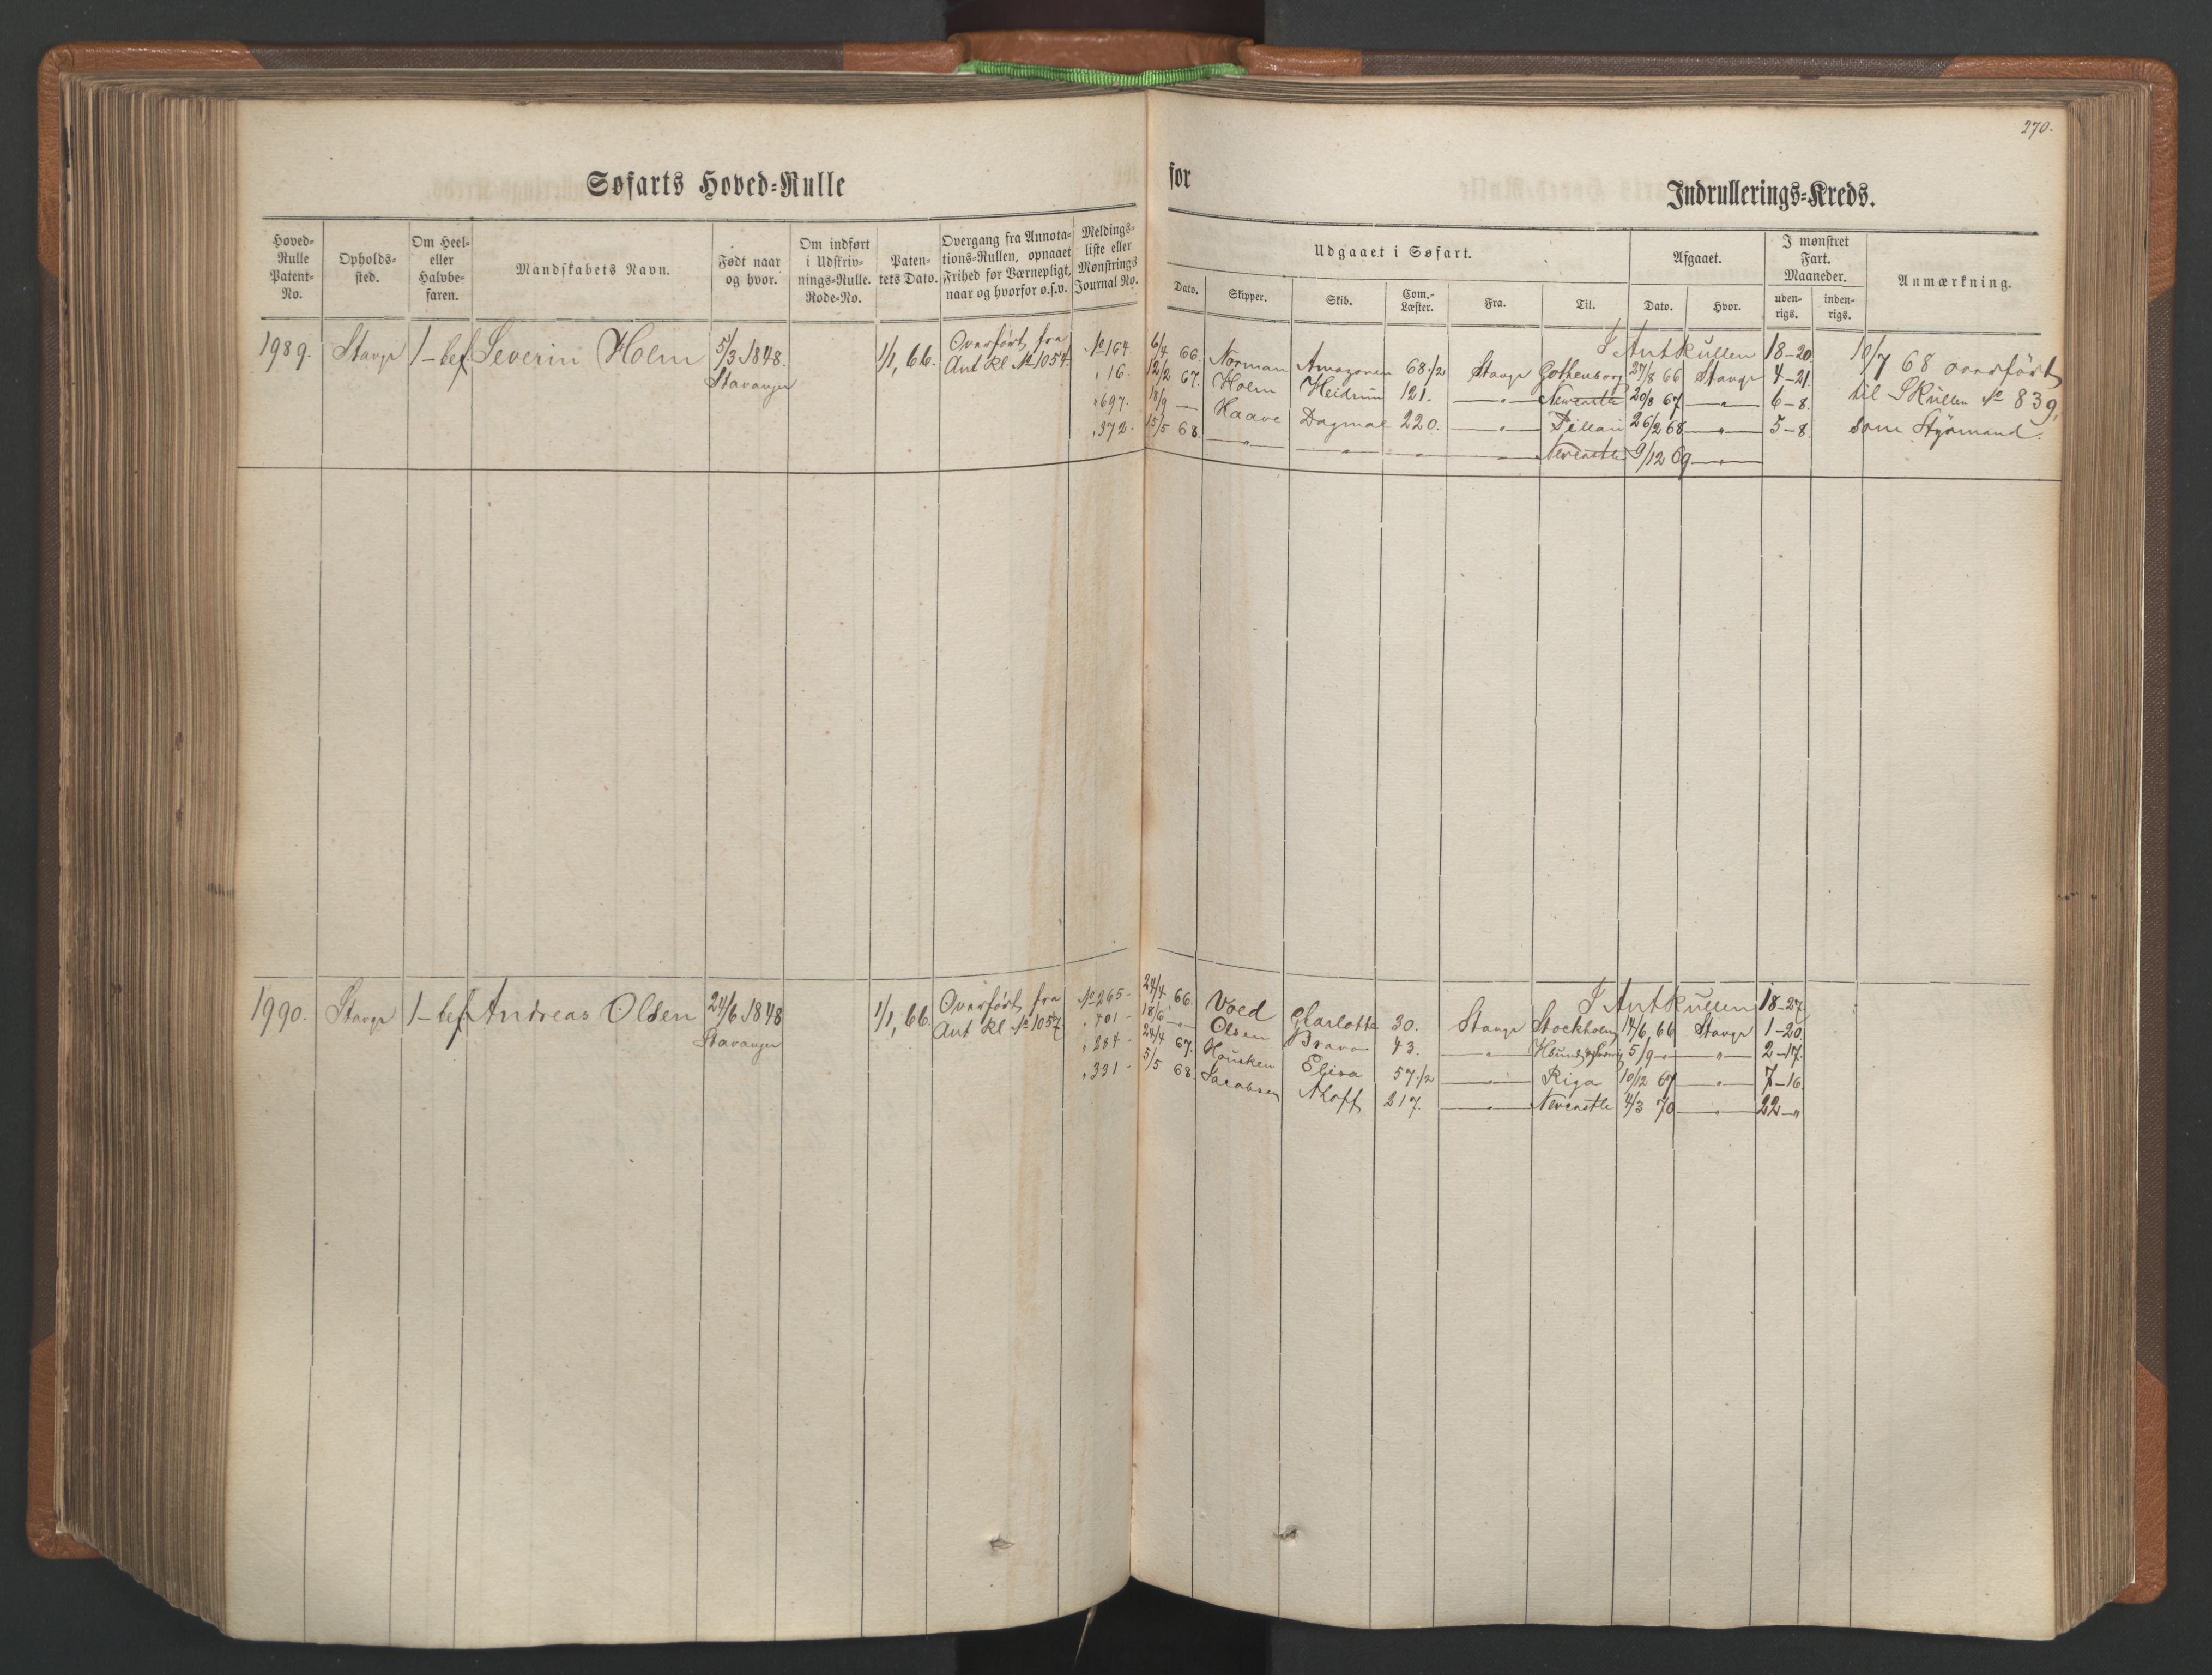 270.
Søfarts Hoved-Rulle
for
Indrullerings-Kreds.
Hoved-Rulle Patent-No.
Opholds-sted.
Om Heel- eller Halvbe-faren.
Mandskabets Navn.
Født naar og hvor.
Om indført i Udskriv-nings-Rulle. Rode-No.
Paten-tets Dato.
Overgang fra Annota-tions-Rullen, opnaaet Frihed for Værnepligt, naar og hvorfor o.s.v.
Meldings-liste eller Mønstrings Journal No.
Udgaaet i Søfart.
Dato.
Skipper.
Skib.
Com.-Læster.
Fra.
Til.
Afgaaet.
Dato.
Hvor.
I mønstret Fart. Maaneder.
uden-rigs.
inden-rigs.
Anmærkning.
1989. Stavgr 1-bef Severin Holm 5/3 1848. Stavanger 1/1, 66. Overført fra Ant Rl. No 1054.
I Ant Rullen 18-20
No 164. 6/4 66. Norman Amazonen 68 1/2 Stavgr Gothenborg 27/8 66 Stavgr 4-21.
" 16. 12/2 67. Holm Heidrun 121. —"— Newcastle 20/8 67 —"— 6-8.
" 697. 18/9 — Haave Dagmar 220. —"— Pillau 26/2 68 —"— 5-8.
" 372. 15/5 68. —"— —"— —"— —"— Newcastle 9/12 69 —"—
10/7 68 overført
til SRullen No 839,
som Styrmand.
1990. Stavgr 1-bef Andreas Olsen 24/6 1848 Stavanger 1/1, 66. Overført fra Ant Rl No 1057.
I Ant Rullen 18-27
No 265- 24/4 66. Voed Charlotte 30. Stavgr Stockholm 14/6, 66 Stavgr 1-20.
" 401- 18/6 —"— Olsen Bravo 43. —"— 5/9 —"— —"— 2-17.
" 284- 24/4 67. Housken Elisa 57 1/2 —"— Riga 10/12 67 —"— 7-16.
" 331- 5/5 68. Jacobsen Aloft 217. —"— Newcastle 4/3 70 —"— 22-"